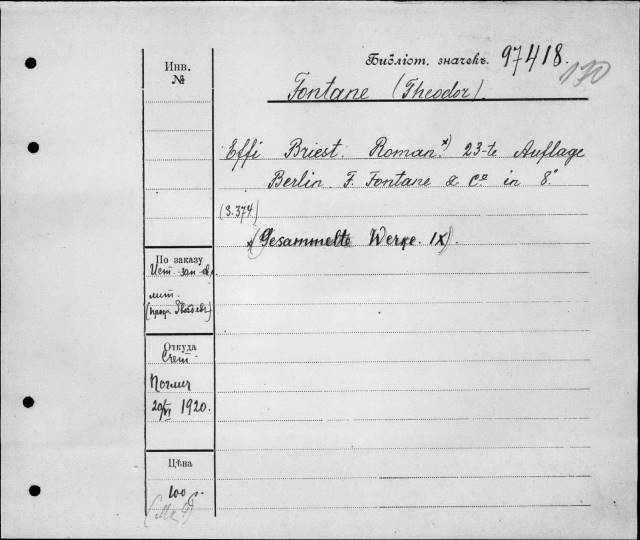 Инв.
№
Библіот. значекъ. 97418.
130
Fontane (Theodor).
Effi Briest. Roman.*) 23-te Auflage
Berlin. F. Fontane & Cº in 8.º
(3.374)
*(Gesammelte Werge. IX).
По заказу
Ист. зап-евр.
лит.
Откуда
Счет
20/VI 1920.
Цѣна
100 р.